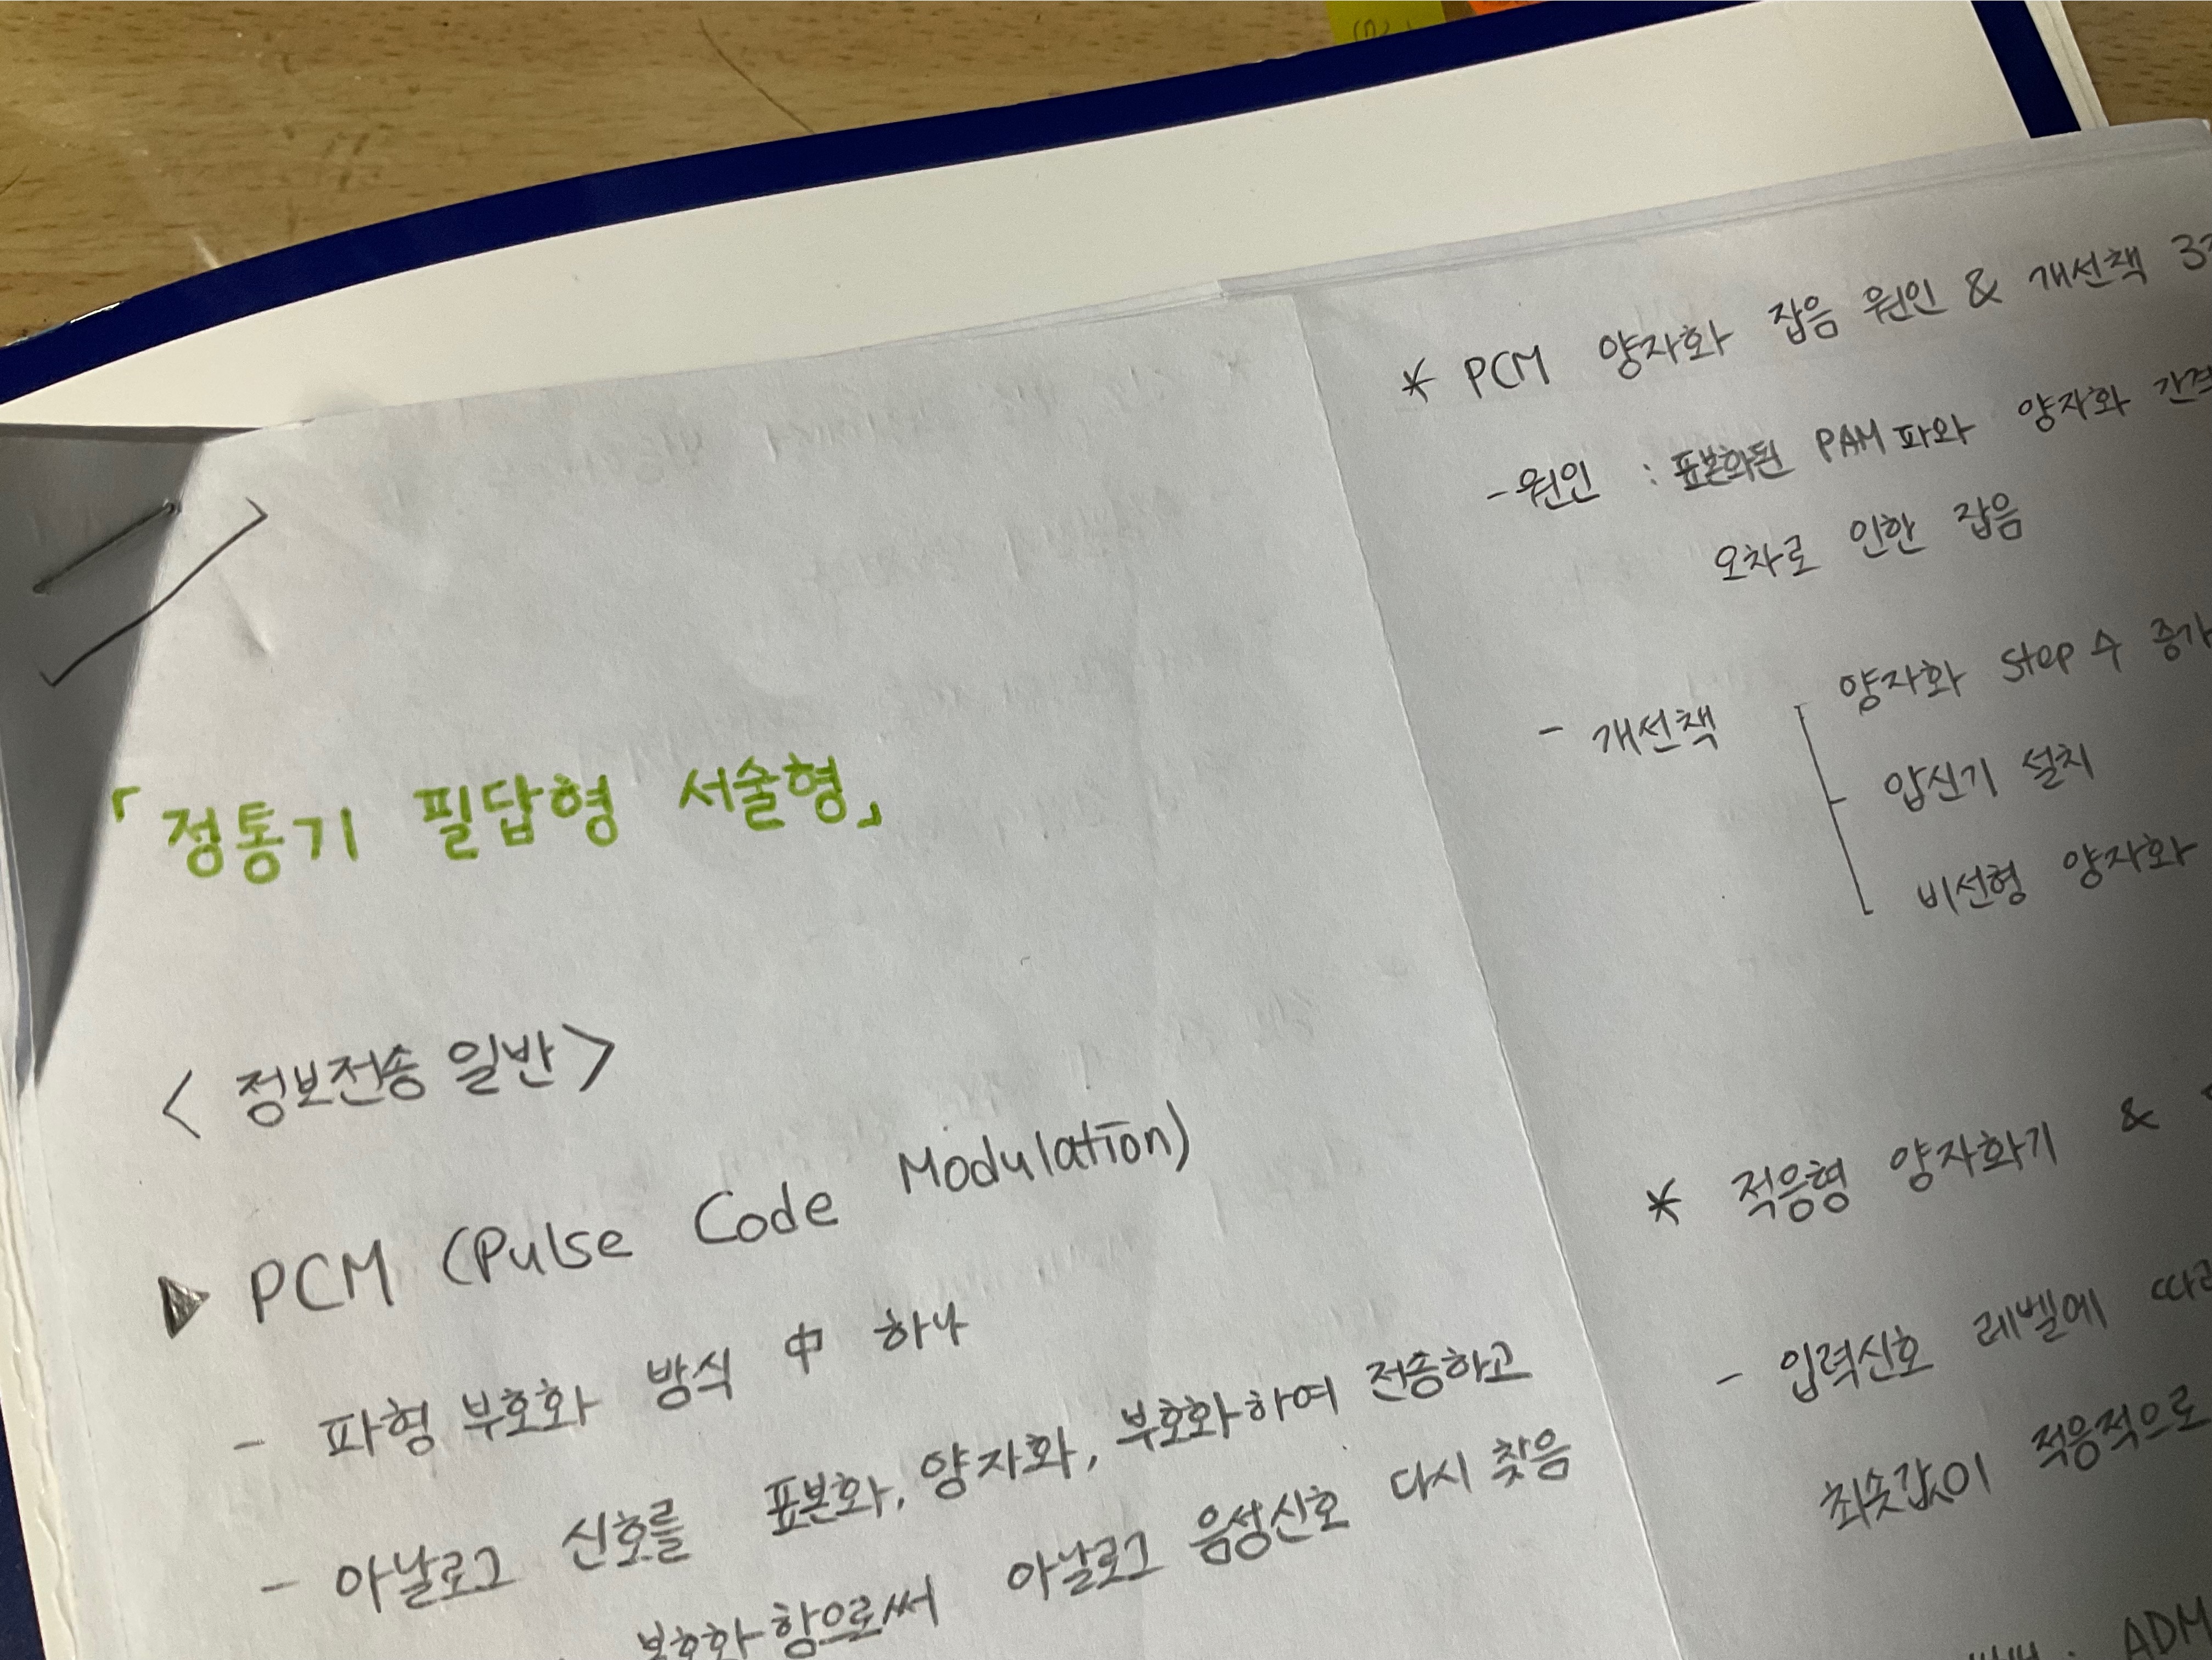 「정통기 필답형 서술형」
< 정보전송 일반 >
▶ PCM (Pulse Code Modulation)
- 파형 부호화 방식 中 하나
- 아날로그 신호를 표본화, 양자화, 부호화하여 전송하고
복호화함으로써 아날로그 음성신호 다시 찾음
* PCM 양자화 잡음 원인 & 개선책 3
- 원인 : 표본화된 PAM파와 양자화 간격
오차로 인한 잡음
- 개선책
양자화 step 수 증가
압신기 설치
비선형 양자화
* 적응형 양자화기 &
- 입력신호 레벨에 따라
최솟값이 적응적으로
ADM